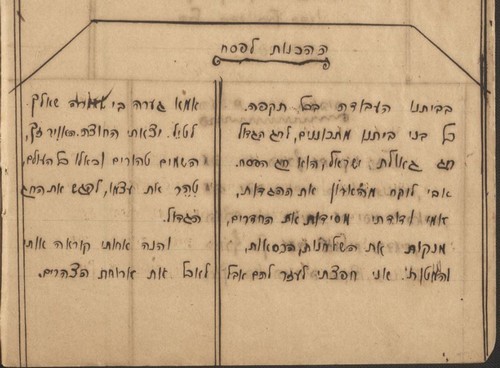 ההכנות לפסח
בביתנו העבודה בכל תקפה.
כל בני ביתנו מתכוננים, לחג הגדול
חג גאולת ישראל, הוא חג הפסח.
אבי לוקח מהארון את ההגדות,
אמי ודודתי מסידות את החדרים,
מנקות את השלחנות, הכסאות,
והמטות. אני חפצתי לעזר להם אבל
אמא גערה בי שאלך
לטיל. יצאתי החוצה. האויר זך,
השמים טהורים וכאלו כל העולם,
טהר את עצמו, לפגש את החג
הגדול.
והנה אחותי קוראה אותי
לאכל את ארוחת הצהרים.